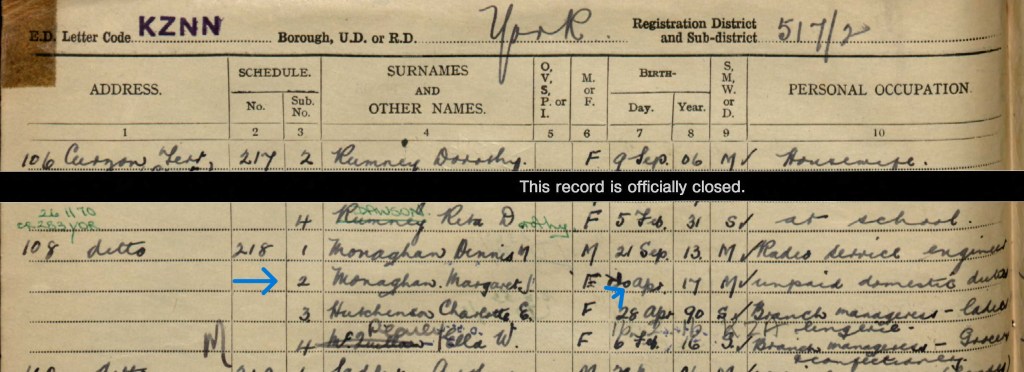 E.D. Letter Code KZNN Borough, U.D. or R.D. York Registration District and Sub-district 517/2
ADDRESS. SCHEDULE. No. Sub. No. SURNAMES AND OTHER NAMES. O, V, S, P. or I. M. or F. BIRTH- Day. Year. S, M, W. or D. PERSONAL OCCUPATION.
1 2 3 4 5 6 7 8 9 10
106 Curzon Terr, 217 2 Rumney Dorothy. F 9 Sep. 06 M Housewife.
This record is officially closed.
26 11 70 DAWSON
4 Rumney Rita D orothy F 5 Feb. 31 S at school.
108 ditto 218 1 Monaghan Dennis M 21 Sep. 13. M Radio service engineer
2 Monaghan. Margaret J. F Apr. 17 M unpaid domestic duties
3 Hutchinson Charlotte E. F 28 Apr 90 S Branch manageress - Ladies
lingerie.
M 4 Ella W. F 6 Feb. 16 S Branch manageress - Grocery
confectionery
ditto